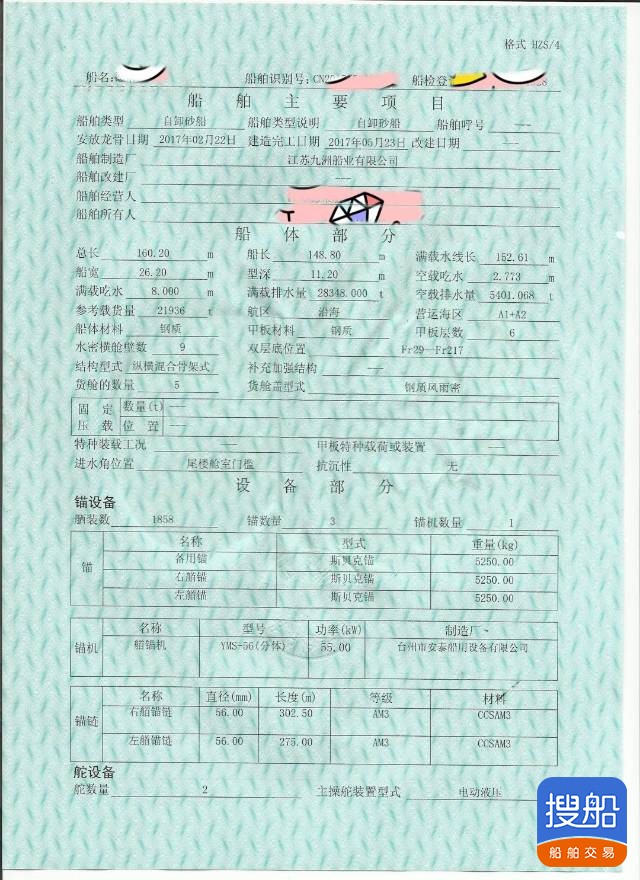 格式 HZS/4
船名: 船舶识别号: CN20 船检登
船舶主要项目
船舶类型 自卸砂船 船舶类型说明 自卸砂船 船舶呼号 ---
安放龙骨日期 2017年02月22日 建造完工日期 2017年05月23日 改建日期 ---
船舶制造厂 江苏九洲船业有限公司
船舶改建厂 ---
船舶经营人
船舶所有人
船体部分
总长 160.20 m 船长 148.80 m 满载水线长 152.61 m
船宽 26.20 m 型深 11.20 m 空载吃水 2.773 m
满载吃水 8.000 m 满载排水量 28348.000 t 空载排水量 5401.068 t
参考载货量 21936 t 航区 沿海 营运海区 A1+A2
船体材料 钢质 甲板材料 钢质 甲板层数 6
水密横舱壁数 9 双层底位置 Fr29--Fr217
结构型式 纵横混合骨架式 补充加强结构 ---
货舱的数量 5 货舱盖型式 钢质风雨密
固定压载 数量(t) ---
位置 ---
特种装载工况 --- 甲板特种载荷或装置 ---
进水角位置 尾楼舱室门槛 抗沉性 无
设备部分
锚设备
舾装数 1858 锚数量 3 锚机数量 1
锚 名称 型式 重量(kg)
备用锚 斯贝克锚 5250.00
右艏锚 斯贝克锚 5250.00
左艏锚 斯贝克锚 5250.00
锚机 名称 型号 功率(kW) 制造厂
艏锚机 YMS-56(分体) 55.00 台州市安泰船用设备有限公司
锚链 名称 直径(mm) 长度(m) 等级 材料
右艏锚链 56.00 302.50 AM3 CCSAM3
左艏锚链 56.00 275.00 AM3 CCSAM3
舵设备
舵数量 2 主操舵装置型式 电动液压
搜船
船舶交易